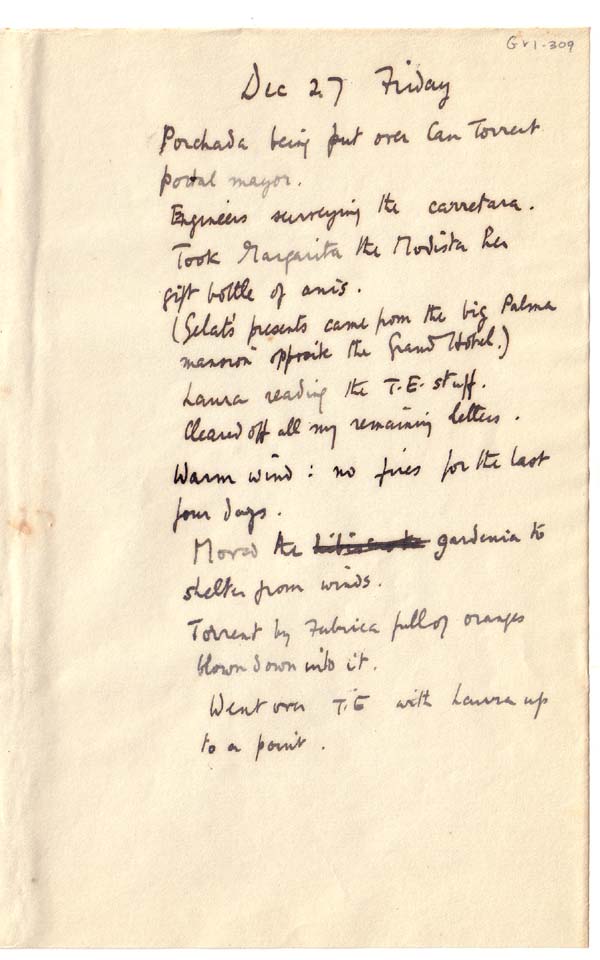 GV1-309
Dec 27 Friday
Porchada being put over Can Torrent
portal mayor.
Engineers surveying the carretara.
Took Margarita the Modista her
gift bottle of anis.
(Gelat's presents came from the big Palma
mansion opposite the Grand Hotel.)
Laura reading the T.E. stuff.
Cleared off all my remaining letters.
Warm wind: no fires for the last
four days.
Moved the gardenia to
shelter from winds.
Torrent by Fabrica full of oranges
blown down into it.
Went over T.E with Laura up
to a point.